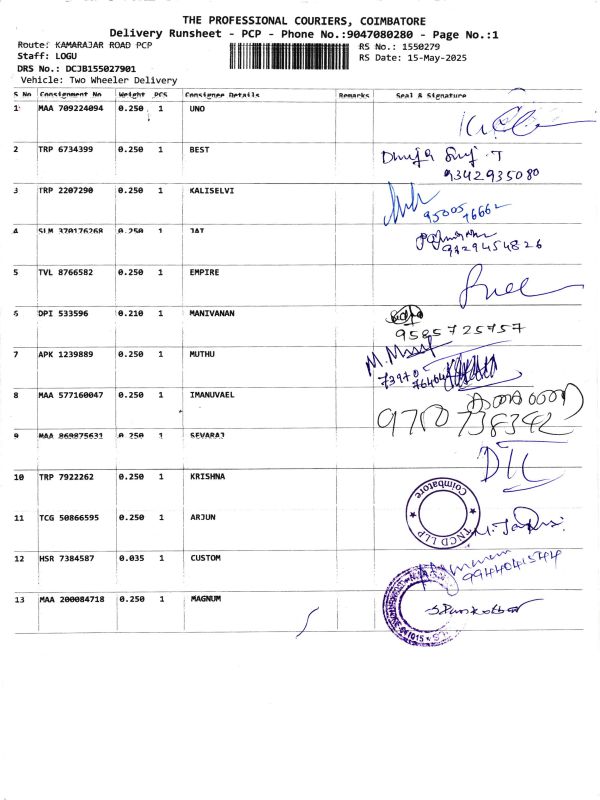 THE PROFESSIONAL COURIERS, COIMBATORE
Delivery Runsheet - PCP - Phone No.:9047080280 - Page No.:1
Route: KAMARAJAR ROAD PCP
RS No.: 1550279
Staff: LOGU
RS Date: 15-May-2025
DRS No.: DCJB155027901
Vehicle: Two Wheeler Delivery
S No Consignment No Weight PCS Consignee Details Remarks Seal & Signature
1 MAA 709224094 0.250 1 UNO
2 TRP 6734399 0.250 1 BEST
9342935080
3 TRP 2207290 0.250 1 KALISELVI
95005 76662
4 SLM 370176268 0.250 1 JAT
9429454826
5 TVL 8766582 0.250 1 EMPIRE
6 DPI 533596 0.210 1 MANIVANAN
9585725757
7 APK 1239889 0.250 1 MUTHU
8 MAA 577160047 0.250 1 IMANUVAEL
9710738342
9 MAA 869875631 0.250 1 SEVARAJ
10 TRP 7922262 0.250 1 KRISHNA
Coimbatore
11 TCG 50866595 0.250 1 ARJUN
TNCD LLP
12 HSR 7384587 0.035 1 CUSTOM
9944041544
13 MAA 200084718 0.250 1 MAGNUM